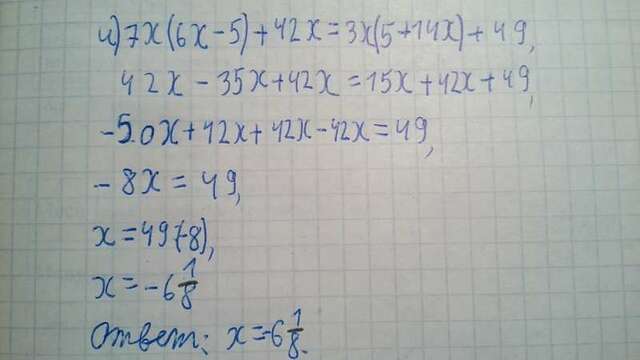 и) 7x(6x-5)+42x=3x(5+14x)+49,
42x-35x+42x=15x+42x+49,
-50x+42x+42x-42x=49,
-8x=49,
x=49:(-8),
x=-6 1/8
Ответ: x=-6 1/8.